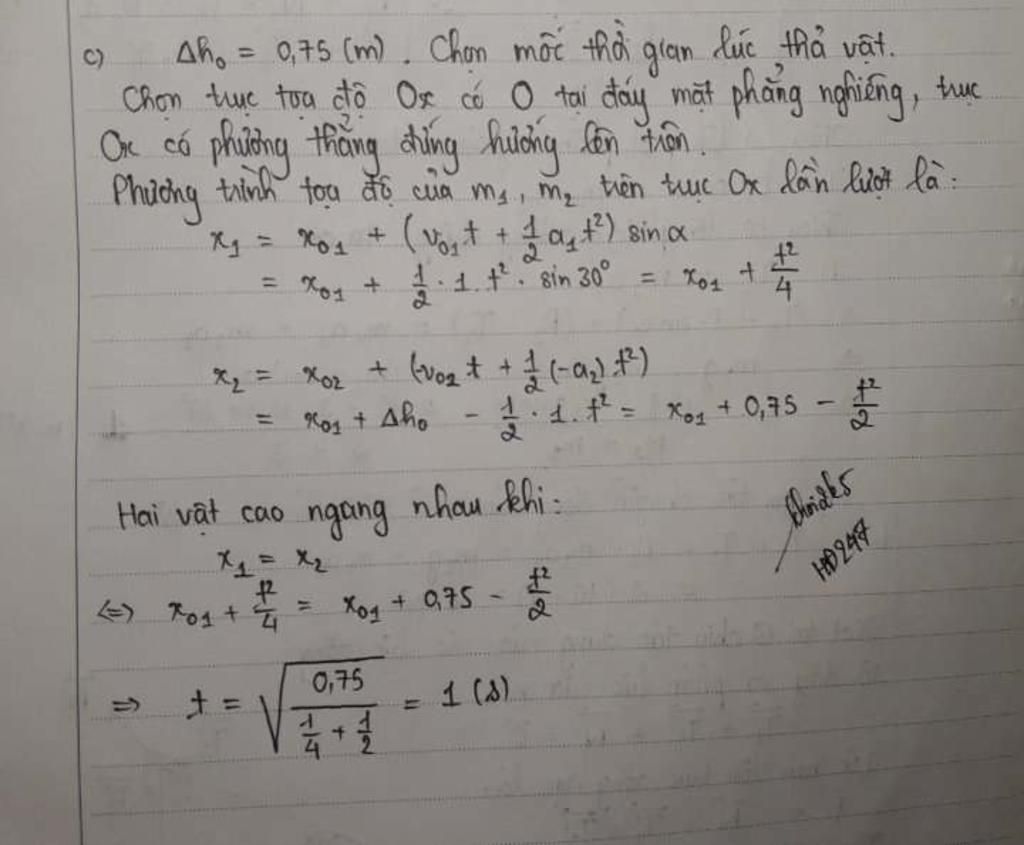 c) Δh₀ = 0,75 (m). Chọn mốc thời gian lúc thả vật.
Chọn trục tọa độ Ox có O tại đáy mặt phẳng nghiêng, trục
Ox có phương thẳng đứng hướng lên trên.
Phương trình tọa độ của m₁, m₂ trên trục Ox lần lượt là:
x₁ = x₀₁ + (v₀₁t + 1/2 a₁t²) sin α
= x₀₁ + 1/2 · 1. t² · sin 30° = x₀₁ + t²/4
x₂ = x₀₂ + (-v₀₂t + 1/2 (-a₂).t²)
= x₀₁ + Δh₀ - 1/2 · 1. t² = x₀₁ + 0,75 - t²/2
Hai vật cao ngang nhau khi:
x₁ = x₂
⇔ x₀₁ + t²/4 = x₀₁ + 0,75 - t²/2
⇒ t = √(0,75/(1/4 + 1/2)) = 1 (s)
HD247